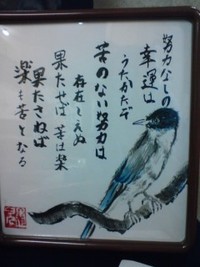 努力なしの
幸運は
うたかたぞ
苦のない努力は
存在しえぬ
果たせば苦は楽
果たさねば
楽も苦となる